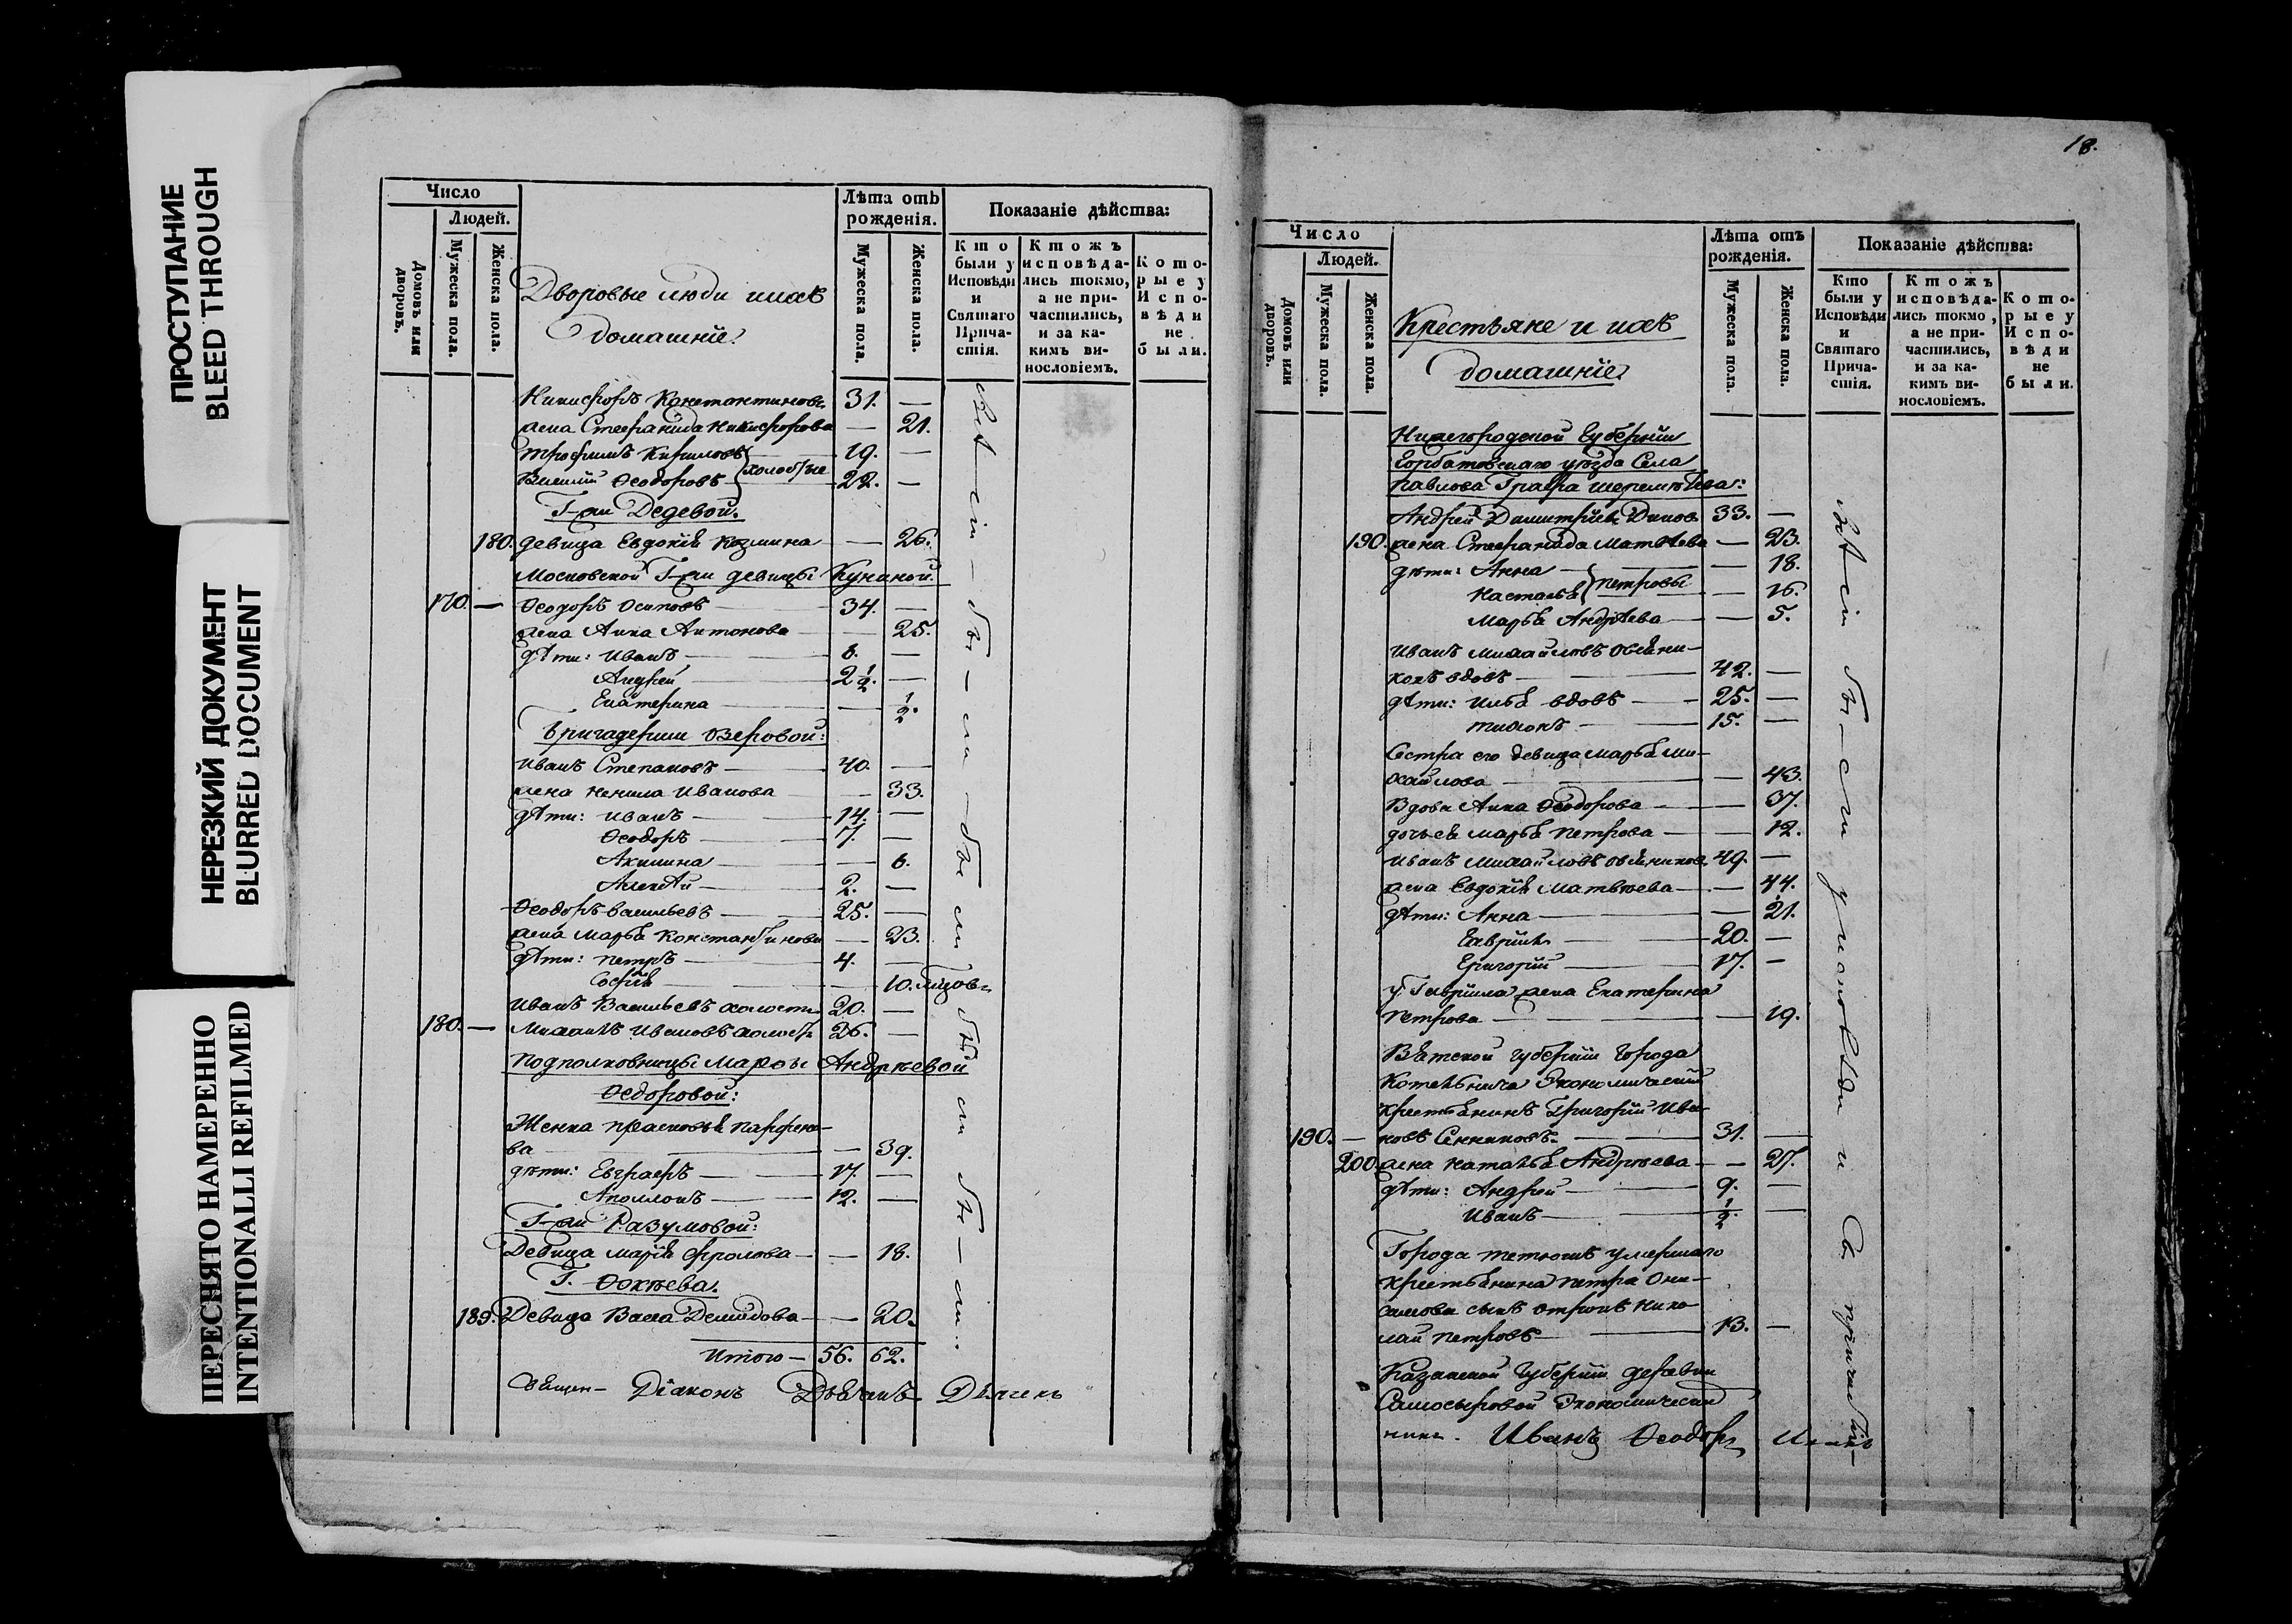 ПРОСТУПАНИЕ
BLEED THROUGH
НЕРЕЗКИЙ ДОКУМЕНТ
BLURRED DOCUMENT
ПЕРЕСНЯТО НАМЕРЕННО
INTENTIONALLI REFILMED
Число
Людей.
Домовъ или дворовъ.
Мужеска пола.
Женска пола.
Дворовые люди и ихъ
домашніе.
Лѣта отъ
рожденія.
Мужеска пола.
Женска пола.
Показаніе дѣйства:
Кто были у Исповѣди и Святаго Причастія.
Ктожъ исповѣдались токмо, а не причастились, и за какимъ винословіемъ.
Которые у Исповѣди не были.
Никифоръ Константиновъ 31. —
жена Стефанида Никифорова — 21.
Трофимъ Кириловъ 19. —
Василій Ѳеодоровъ холостые 22. —
Г-жи Дедевой.
180. девица Евдокія Козмина — 26.
Московской Г-жи девицы Куниной.
170. — Ѳеодоръ Осиповъ 34. —
жена Анна Антонова — 25.
дѣти: Иванъ 6. —
Андрей 2 1/2. —
Екатерина — 1/2.
Бригадерши Озеровой:
Иванъ Степановъ 40. —
жена Ненила Иванова — 33.
дѣти: Иванъ 14. —
Ѳеодоръ 7. —
Акилина — 6.
Алексѣй 2. —
Ѳеодоръ Васильевъ 25. —
жена Марья Константинова — 23.
дѣти: Петръ 4. —
Софія — 10.
Иванъ Васильевъ холостъ 20. —
180. — Михаилъ Ивановъ холостъ 26. —
Подполковницы Марѳы Андрѣевой
Ѳедоровой:
Женка Прасковья Парфено-
ва — 39.
дѣти: Евграфъ 17. —
Аполлонъ 12. —
Г-жи Разумовой:
Девица Марія Фролова — 18.
Г. Фокѣева.
189. Девица Васса Демидова — 20.
Итого — 56. 62.
Діаконъ
18.
Число
Людей.
Домовъ или дворовъ.
Мужеска пола.
Женска пола.
Крестьяне и ихъ
домашніе
Лѣта отъ
рожденія.
Мужеска пола.
Женска пола.
Показаніе дѣйства:
Кто были у Исповѣди и Святаго Причастія.
Ктожъ исповѣдались токмо, а не причастились, и за какимъ винословіемъ.
Которые у Исповѣди не были.
Нижегородской Губерніи
Горбатовскаго уѣзда Села
Павлова Графа Шереметева:
Андрей Димитріевъ 33. —
190. жена Стефанида Матвѣева — 23.
дѣти: Анна — 18.
Настасья Петровы — 16.
Марья Андрѣева — 5.
Иванъ Михайловъ Овсяни-
ковъ вдовъ 42. —
дѣти: Илья вдовъ 25. —
Тихонъ 15. —
Сестра его девица Марья Ми-
хайлова — 43.
Вдова Анна Ѳеодорова — 37.
дочь ея Марья Петрова — 12.
Иванъ Михайловъ Овсяниковъ 49. —
жена Евдокія Матвѣева — 44.
дѣти: Анна — 21.
Гавріилъ 20. —
Григорій 17. —
у Гавріила жена Екатерина
Петрова — 19.
Вятской Губерніи города
Котельнича Экономическій
крестьянинъ Григорій Ива-
190. — новъ Сенниковъ 31. —
200. жена Наталья Андрѣева — 27.
дѣти: Андрей 9. —
Иванъ 1/2. —
Города Тетюшъ умершаго
крестьянина Петра Они-
симова сынъ отрокъ Нико-
лай Петровъ 13. —
Казанской Губерніи деревни
Самосыровой Экономической
Иванъ Ѳеодоръ
всѣ сіи бы-ли у исповѣди и Св. причастія